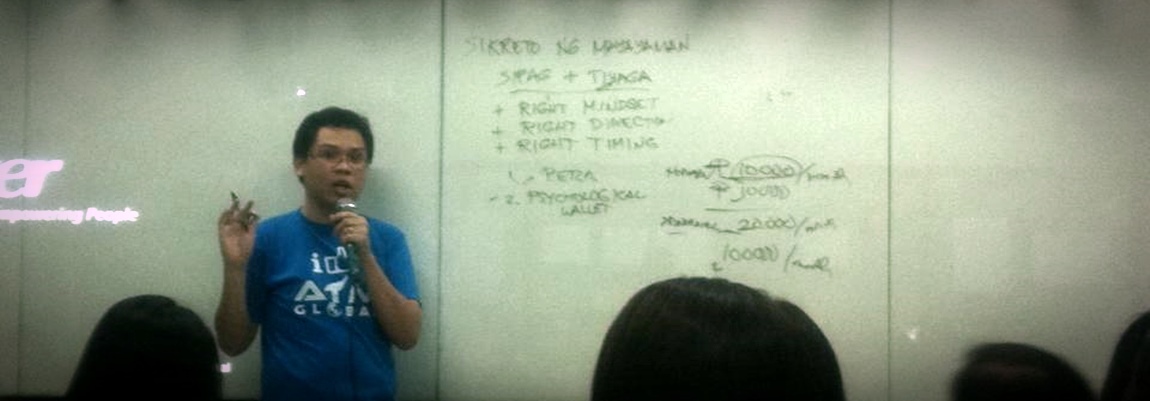 er
empowering People
i
ATM
GLOBAL
SIKRETO NG MAYAYAMAN
SIPAG + TIYAGA
+ RIGHT MINDSET
+ RIGHT DIRECTION
+ RIGHT TIMING
1. PETRA
2. PSYCHOLOGICAL
WALLET
₱ 10000/month
₱ 10000
20.000/month
100000/month